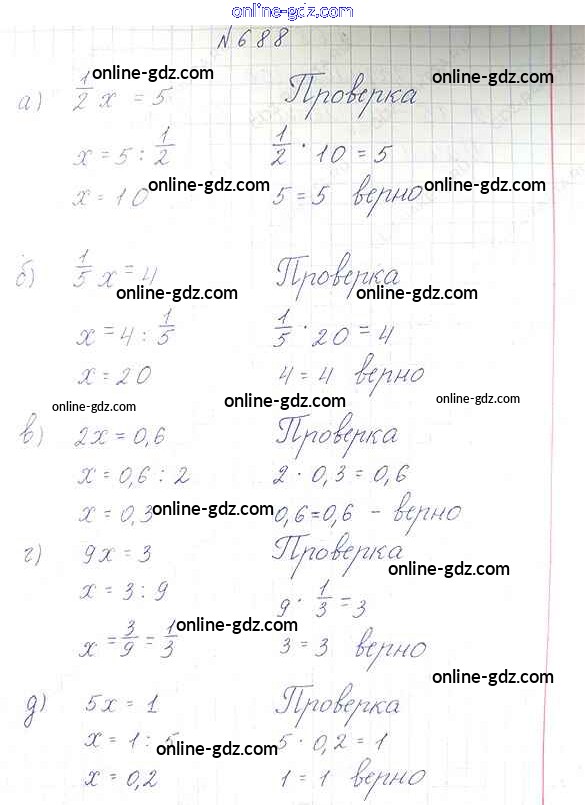 online-gdz.com
№688
online-gdz.com
а) 1/2 x = 5 Проверка
x = 5 : 1/2 1/2 · 10 = 5
online-gdz.com online-gdz.com
x = 10 5 = 5 верно
б) 1/5 x = 4 Проверка
online-gdz.com online-gdz.com
x = 4 : 1/5 1/5 · 20 = 4
x = 20 4 = 4 верно
online-gdz.com online-gdz.com online-gdz.com
в) 2x = 0,6 Проверка
x = 0,6 : 2 2 · 0,3 = 0,6
online-gdz.com online-gdz.com
x = 0,3 0,6=0,6 - верно
г) 9x = 3 Проверка
online-gdz.com
x = 3 : 9 9 · 1/3 = 3
online-gdz.com online-gdz.com
x = 3/9 = 1/3 3 = 3 верно
online-gdz.com
д) 5x = 1 Проверка
x = 1 : 5 5 · 0,2 = 1
online-gdz.com online-gdz.com
x = 0,2 1 = 1 верно